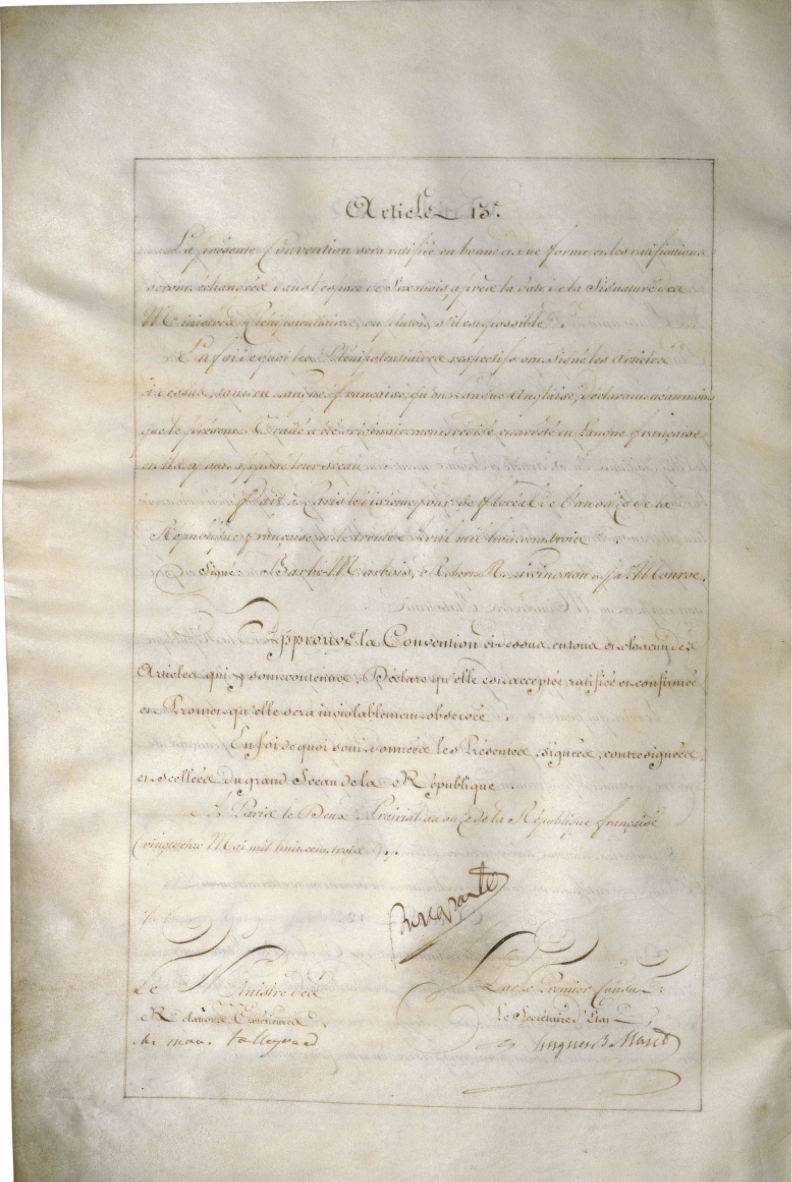 Article 13e.
La présente Convention sera ratifiée en bonne et due forme et les ratifications
seront échangées dans l'espace de Six mois, après la date de la Signature des
Ministres Plénipotentiaires, ou plutôt, s'il est possible.
En foi de quoi les Plénipotentiaires respectifs ont signé les Articles
ci dessus, tant en Langue française, qu'en Langue Anglaise, déclarant néanmoins
que le présent Traité a été originairement rédigé et arrêté en Langue française;
et ils y ont apposé leur Sceau.
Fait à Paris le dixième jour de floréal de l'an onze de la
République française et le trente Avril mil huit cent trois.
Signé: Barbé-Marbois, Robert R. Livingston et Ja.s Monroe.
Approuve la Convention ci dessus en tous et chacun des
Articles qui y sont contenus; Déclare qu'elle est acceptée, ratifiée et confirmée
et Promet qu'elle sera inviolablement observée.
En foi de quoi sont données les Présentes, signées, contresignées
et scellées du grand Sceau de la République.
A Paris le Deux Prairial an onze de la République française
(vingt deux Mai mil huit cent trois).
Bonaparte
Le Ministre des
Relations Extérieures,
ch. mau. talleyrand
Par le Premier Consul:
Le Secrétaire d'Etat
hugues B. Maret